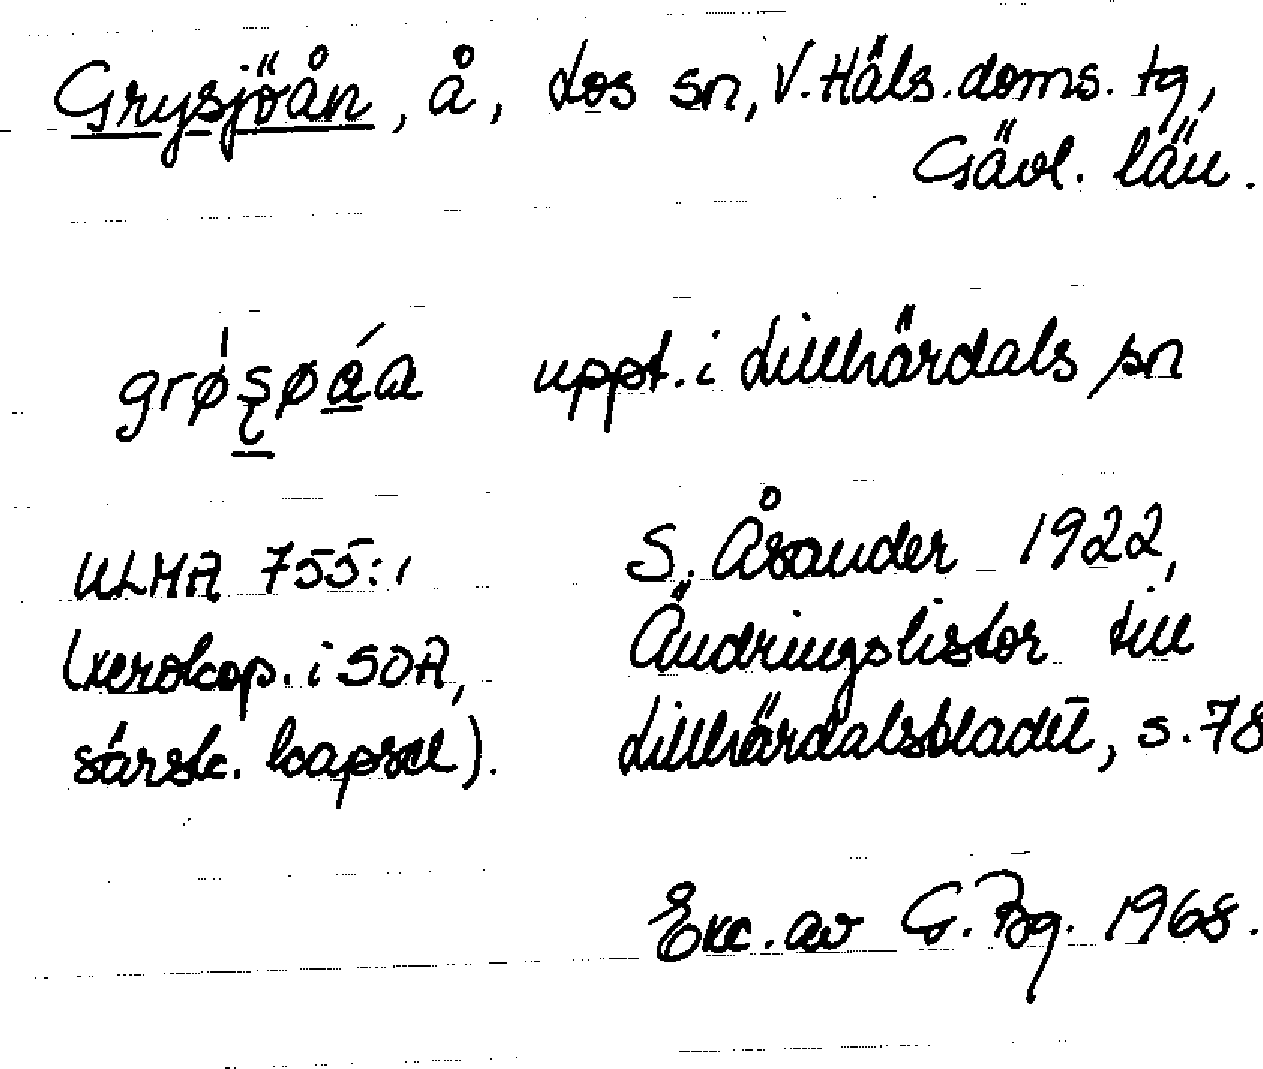 Grysjöån, å, Los sn, V. Häls. doms. tg,
Gävl. län.
uppt. i Lillhärdals sn
ULMA 755:1
(xerokop. i SOA,
särsk. kapsel).
S. Åsander 1922,
Ändringslistor till
Lillhärdalsbladet, s. 78
Exc. av G. Bg. 1968.